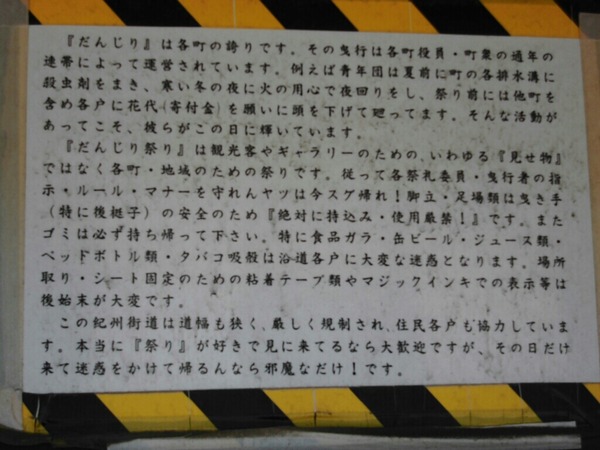 『だんじり』は各町の誇りです。その曳行は各町役員・町衆の通年の
連帯によって運営されています。例えば青年団は夏前に町の各排水溝に
殺虫剤をまき、寒い冬の夜に火の用心で夜回りをし、祭り前には他町を
含め各戸に花代(寄付金)を願いに頭を下げて廻ってます。そんな活動が
あってこそ、彼らがこの日に輝いています。
『だんじり祭り』は観光客やギャラリーのための、いわゆる『見せ物』
ではなく各町・地域のための祭りです。従って各祭礼委員・曳行者の指
示・ルール・マナーを守れんヤツは今スグ帰れ！脚立・足場類は曳き手
(特に後梃子)の安全のため『絶対に持込み・使用厳禁！』です。また
ゴミは必ず持ち帰って下さい。特に食品ガラ・缶ビール・ジュース類・
ペッドボトル類・タバコ吸殻は沿道各戸に大変な迷惑となります。場所
取り・シート固定のための粘着テープ類やマジックインキでの表示等は
後始末が大変です。
この紀州街道は道幅も狭く、厳しく規制され、住民各戸も協力していま
す。本当に『祭り』が好きで見に来てるなら大歓迎ですが、その日だけ
来て迷惑をかけて帰るんなら邪魔なだけ！です。